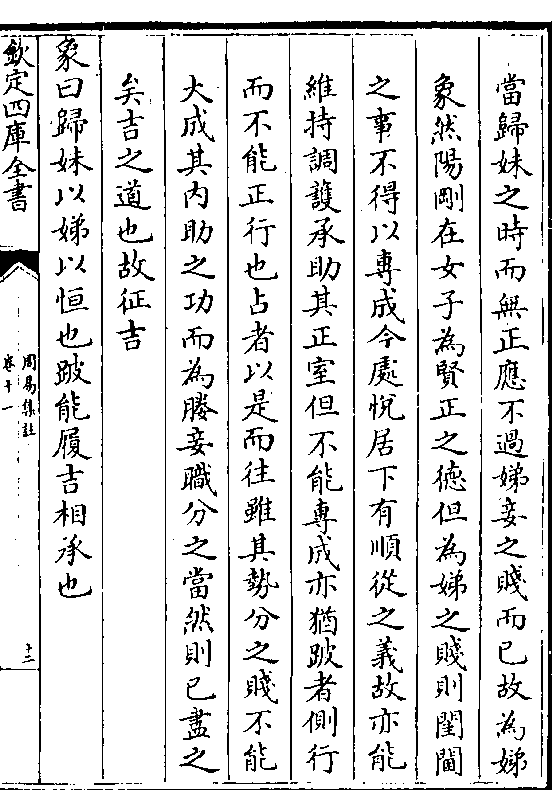 當歸妹之時而無正應不過娣妾之賤而已故為娣
象然陽剛在女子為賢正之德但為娣之賤則閨閫
之事不得以專成今處悅居下有順從之義故亦能
維持調護承助其正室但不能專成亦猶跛者側行
而不能正行也占者以是而往雖其勢分之賤不能
大成其內助之功而為媵妾職分之當然則已盡之
矣吉之道也故征吉
象曰歸妹以娣以恒也跛能履吉相承也
欽定四庫全書
周易集註
卷十一
十三